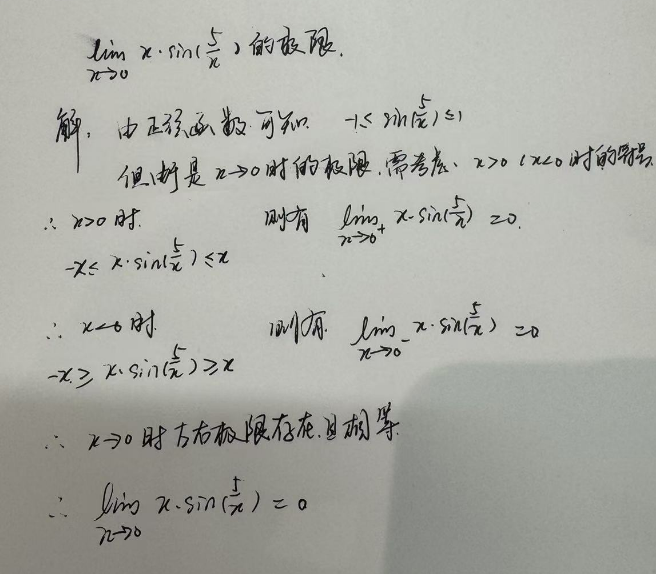 lim x→0 x·sin(5/x) 的极限.
解: 由正弦函数可知 -1≤ sin(5/x) ≤1
但由于是 x→0 时的极限, 需考虑 x>0, x<0 时的
∴ x>0 时. 则有 lim x→0⁺ x·sin(5/x) =0.
-x≤ x·sin(5/x) ≤x
∴ x<0 时. 则有 lim x→0⁻ x·sin(5/x) =0
-x≥ x·sin(5/x) ≥x
∴ x→0 时左右极限存在且相等
∴ lim x→0 x·sin(5/x) = 0